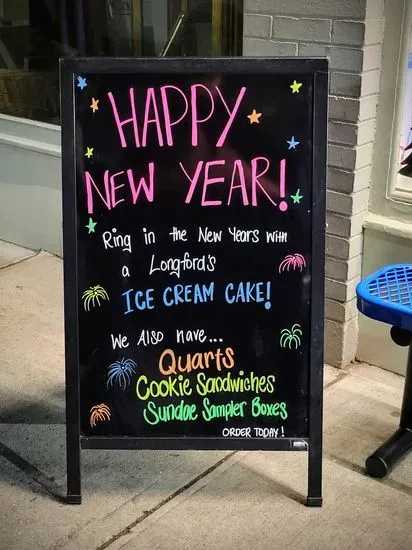 HAPPY
NEW YEAR!
Ring in the New Years with
a Longford's
ICE CREAM CAKE!
We Also have...
Quarts
Cookie Sandwiches
Sundae Sampler Boxes
ORDER TODAY!